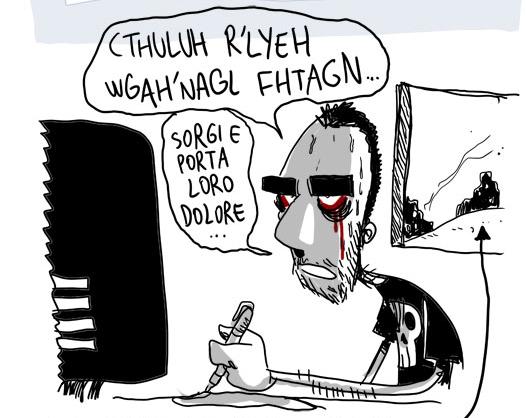 CTHULUH R'LYEH
WGAH'NAGL FHTAGN...
SORGI E
PORTA
LORO
DOLORE
...